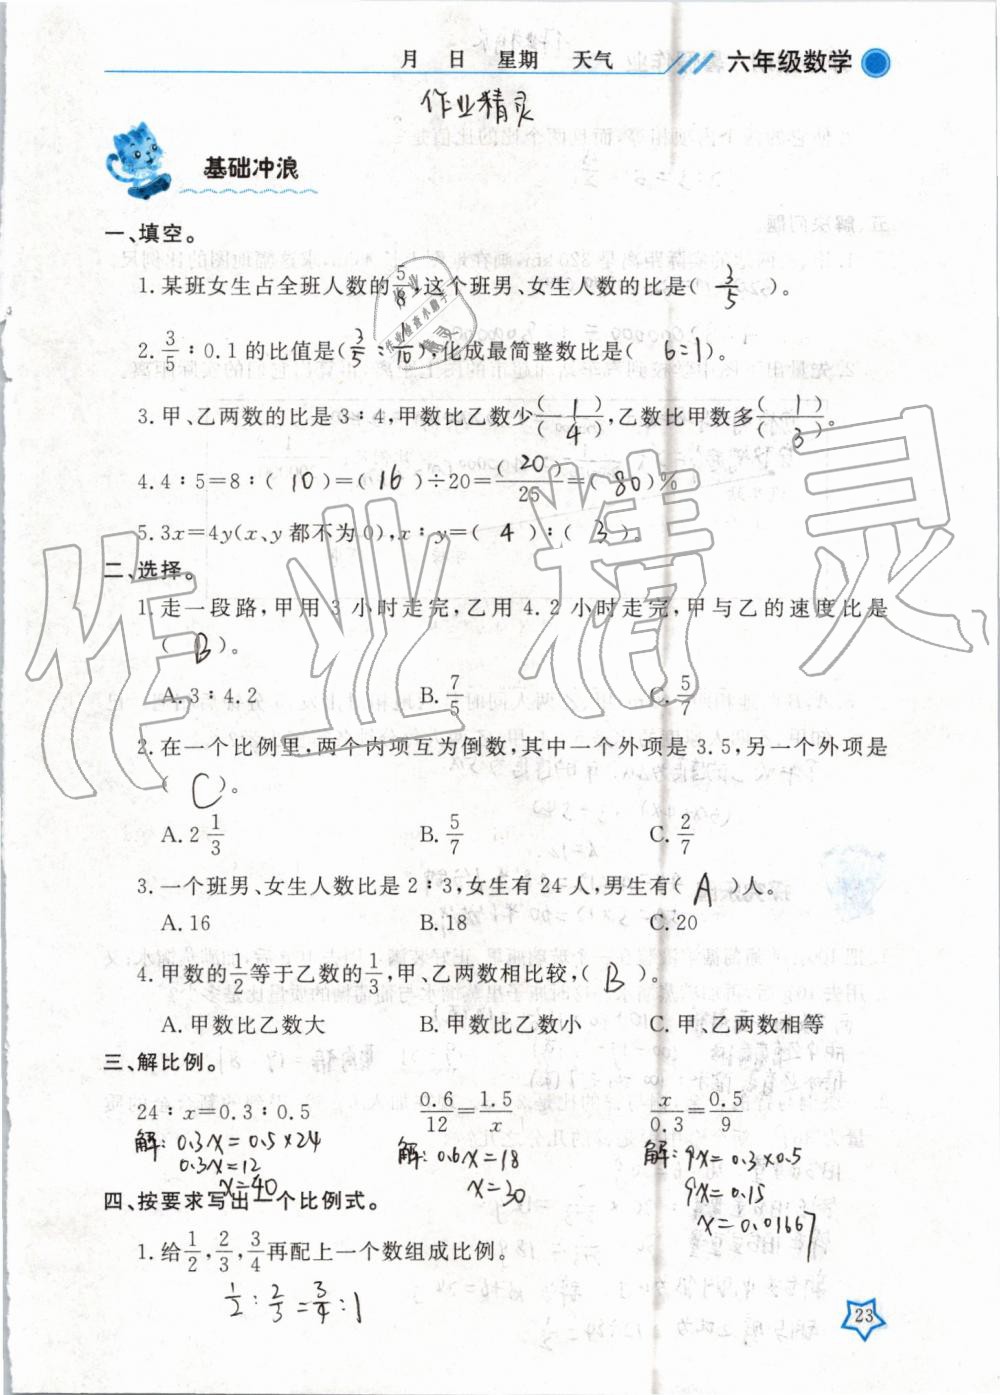 月 日 星期 天气 六年级数学
作业精灵
基础冲浪
一、填空。
1.某班女生占全班人数的5/8,这个班男、女生人数的比是( 3/5 )。
2.3/5∶0.1的比值是(3/5∶1/10),化成最简整数比是( 6:1 )。
3.甲、乙两数的比是3∶4,甲数比乙数少( 1 )/( 4 ),乙数比甲数多( 1 )/( 3 )。
4.4∶5=8∶( 10 )=( 16 )÷20=( 20 )/25=( 80 )%
5.3x=4y(x、y都不为0),x∶y=( 4 )∶( 3 )。
二、选择。
1.走一段路,甲用3小时走完,乙用4.2小时走完,甲与乙的速度比是
( B )。
A.3∶4.2 B.7/5 C.5/7
2.在一个比例里,两个内项互为倒数,其中一个外项是3.5,另一个外项是
( C )。
A.2 1/3 B.5/7 C.2/7
3.一个班男、女生人数比是2∶3,女生有24人,男生有( A )人。
A.16 B.18 C.20
4.甲数的1/2等于乙数的1/3,甲、乙两数相比较,( B )。
A.甲数比乙数大 B.甲数比乙数小 C.甲、乙两数相等
三、解比例。
24∶x=0.3∶0.5 0.6/12=1.5/x x/0.3=0.5/9
解:0.3x=0.5×24 解:0.6x=18 解:9x=0.3×0.5
0.3x=12 x=30 9x=0.15
x=40 x=0.01667
四、按要求写出一个比例式。
1.给1/2,2/3,3/4再配上一个数组成比例。
1/2:2/3=3/4:1
23
作业精灵